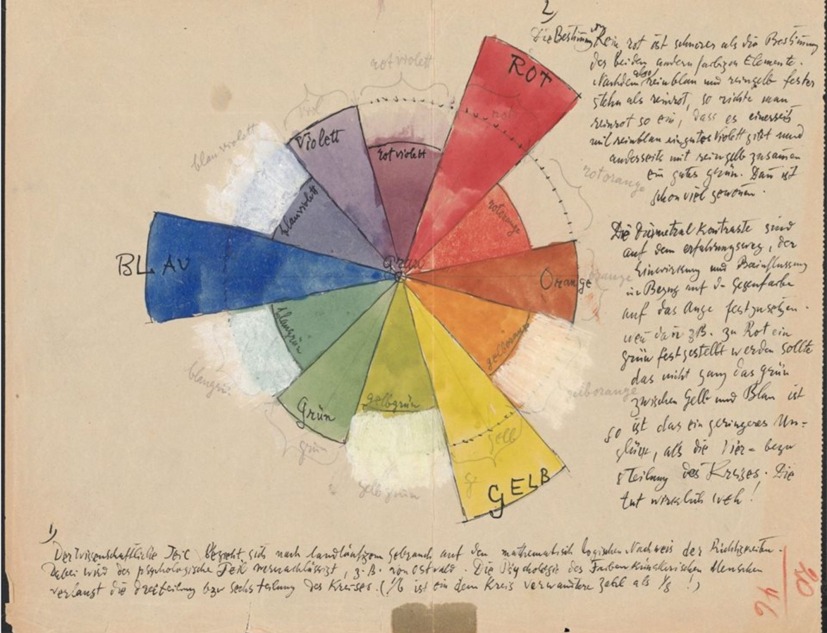 2)
Die Bestimmung von Rein rot ist schwerer als die Bestimmung
der beiden andern farbigen Elemente.
Nachdem aber reinblau und reingelb fester
stehn als reinrot, so richte man
reinrot so ein, dass es einerseits
mit reinblau ein gutes Violett gibt und
anderseits mit reingelb zusammen
ein gutes Dann ist
schon viel gewonnen.
Die diametral Kontraste sind
auf dem erfahrungsweg, der
Einwirkung und Beeinflussung
in Bezug auf die Gegenfarbe
auf das Auge festzusetzen.
wen dann z.B. zu Rot ein
grün festgestellt werden sollte
das nicht ganz das grün
zwischen Gelb und Blau ist
so ist das ein geringeres Un-
glück, als die vier- bezw
8 teilung des Kreises. Die
tut wirklich weh!
rotviolett
viol
blauviolett
ROT
rot
Violett
rotviolett
blauviolett
rotorange
rotorange
BLAU
Grau
Orange
orange
blaugrün
gelborange
gelborange
blaugrün
Grün
gelbgrün
grün
gelb
gelbgrün
GELB
1)
Der Wissenschaftliche Teil bezieht sich nach landläufigem gebrauch auf den mathematisch logischen Nachweis der Richtigkeiten.
Dabei wird der psychologische Teil vernachlässigt, z.B. von Ostwald. Die Psychologie des Farbenkünstlerischen Menschen
verlangt die dreiteilung bzw sechsteilung des Kreises. (1/6 ist ein dem Kreis verwandtere Zahl als 1/8 !)
20
46